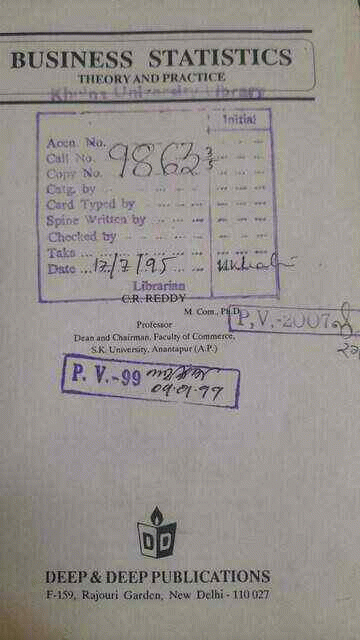 BUSINESS STATISTICS
THEORY AND PRACTICE
Khulna University Library
Initial
Accn. No.
Call No.
Copy No.
9862
3
5
Catg. by
Card Typed by
Spine Written by
Checked by
Taka
Date 12/7/95
Librarian
C.R. REDDY
M. Com., Ph.D.
Professor
Dean and Chairman, Faculty of Commerce,
S.K. University, Anantapur (A.P.)
P. V.-2007
P. V.-99
09.01.99
DD
DEEP & DEEP PUBLICATIONS
F-159, Rajouri Garden, New Delhi - 110 027